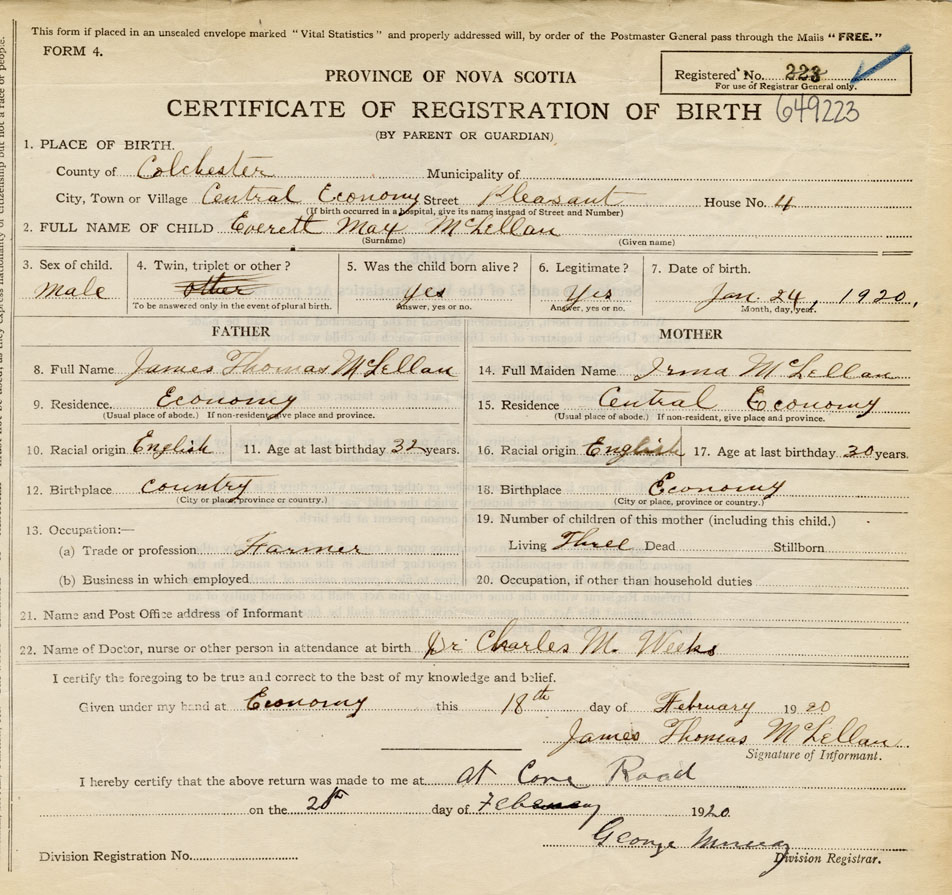 This form if placed in an unsealed envelope marked "Vital Statistics" and properly addressed will, by order of the Postmaster General pass through the Mails "FREE."
FORM 4.
PROVINCE OF NOVA SCOTIA
Registered No. 223
For use of Registrar General only.
CERTIFICATE OF REGISTRATION OF BIRTH 649223
(BY PARENT OR GUARDIAN)
1. PLACE OF BIRTH.
County of Colchester Municipality of
City, Town or Village Central Economy Street Pleasant House No. 4
(If birth occurred in a hospital, give its name instead of Street and Number)
2. FULL NAME OF CHILD Everett Max McLellan
(Surname) (Given name)
3. Sex of child. 4. Twin, triplet or other? 5. Was the child born alive? 6. Legitimate? 7. Date of birth.
Male other yes Yes Jan. 24, 1920.
To be answered only in the event of plural birth. Answer, yes or no. Answer, yes or no. Month, day, year.
FATHER MOTHER
8. Full Name James Thomas McLellan 14. Full Maiden Name Irma McLellan
9. Residence. Economy 15. Residence Central Economy
(Usual place of abode.) If non-resident, give place and province. (Usual place of abode.) If non-resident, give place and province.
10. Racial origin English 11. Age at last birthday 32 years. 16. Racial origin English 17. Age at last birthday years.
12. Birthplace country 18. Birthplace Economy
(City or place, province or country.) (City or place, province or country.)
13. Occupation:— 19. Number of children of this mother (including this child.)
(a) Trade or profession Farmer Living Three Dead Stillborn
(b) Business in which employed 20. Occupation, if other than household duties
21. Name and Post Office address of Informant
22. Name of Doctor, nurse or other person in attendance at birth Dr Charles M. Weeks
I certify the foregoing to be true and correct to the best of my knowledge and belief.
Given under my hand at Economy this 18th day of February 1920
James Thomas McLellan
Signature of Informant.
I hereby certify that the above return was made to me at at Cove Road
on the 28th day of February 1920.
George
Division Registration No. Division Registrar.